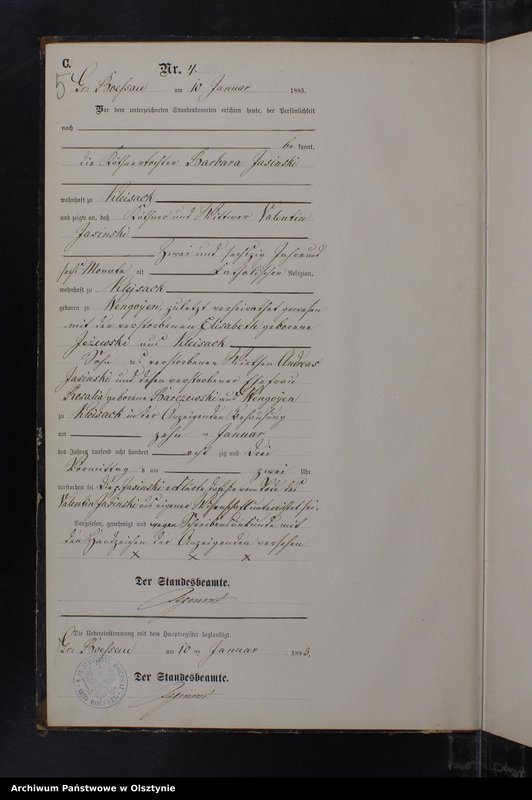 C.
5
Nr. 4.
Gr. Boessau am 10 Januar 1883.
Vor dem unterzeichneten Standesbeamten erschien heute, der Persönlichkeit
nach
be kannt,
die Käthnertochter Barbara Jasinski
wohnhaft zu Kleisack
und zeigte an, daß Käthner und Wittwer Valentin
Jasinski
Zwei und sechszig Jahre und
sechs Monate alt Katholischer Religion,
wohnhaft zu Kleisack
geboren zu Wengoyen, zuletzt verheirathet gewesen
mit der verstorbenen Elisabeth geborene
Jezewski aus Kleisack
Sohn des verstorbenen Andreas
Jasinski und dessen verstorbener Ehefrau
Rosalia geborenen Barczewski aus Wengoyen
zu Kleisack in der Anzeigenden Behausung
am zehn ten Januar
des Jahres tausend acht hundert acht zig und drei
Vormittag s um zwei Uhr
verstorben sei Die Jasinski erklärte daß sie vom Tode des
Valentin Jasinski aus eigener Wissenschaft unterrichtet sei.
Vorgelesen, genehmigt und wegen Schreibensunkunde mit
den Handzeichen der Anzeigenden versehen
x x x
Der Standesbeamte.
Die Uebereinstimmung mit dem Hauptregister beglaubigt.
Gr. Boessau am 10 ten Januar 1883.
Der Standesbeamte.
Archiwum Państwowe w Olsztynie